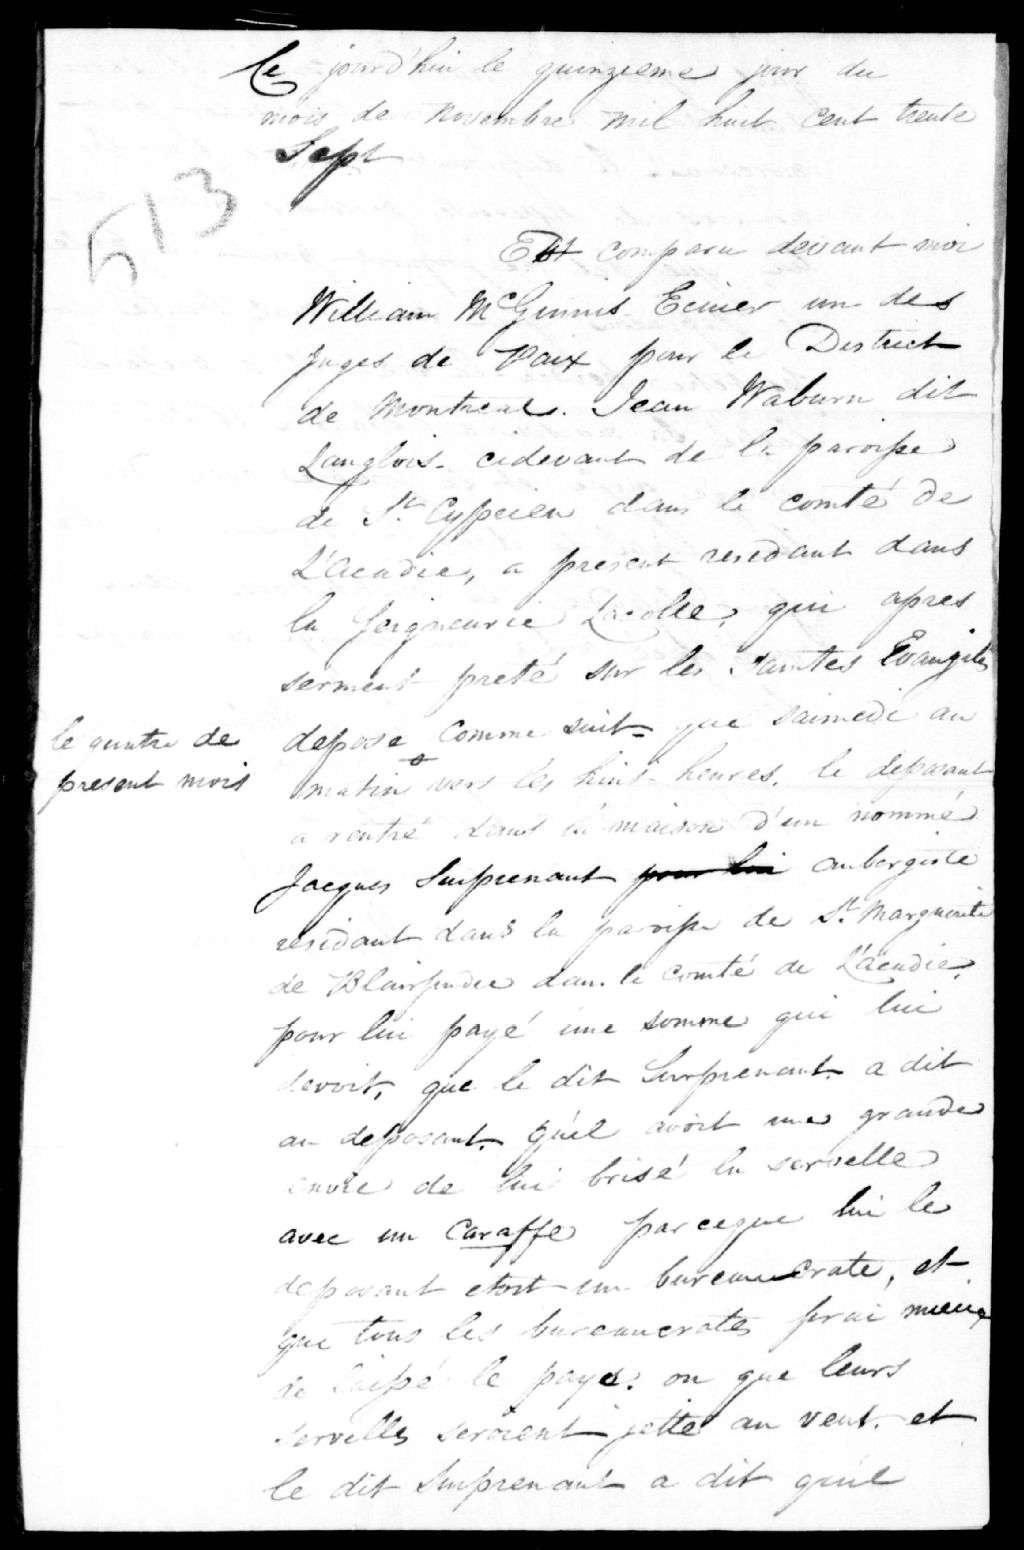 Ce jourd'hui le quinzieme jour du
mois de Novembre mil huit cent trente
Sept
513
Est comparu devant moi
William McGinnis Ecuier un des
Juges de Paix pour le District
de Montreal. Jean Waburn dit
Langlois - cidevant de la paroisse
de St. Cyprien dans le comté de
L'acadie, a present residant dans
la Seigneurie Lacolle, qui apres
serment preté sur les Saintes Evangiles
depose comme suit - que saimedi au
le quatre de
present mois
matin vers les huit heures, le deposant
a rentré dans la maison d'un nommé
Jacques Surprenant pour lui aubergiste
residant dans la paroisse de St. Marguerite
de Blairfindie dans le comté de L'acadie,
pour lui payé une somme qui lui
devoit, que le dit Surprenant a dit
au deposant, qu'il avoit une grande
envie de lui brisé la servelle
avec un caraffe parceque lui le
deposant etoit un bureaucrate, et
que tous les bureaucrates frai mieux
de laissé le pays. ou que leurs
servelles seroient jetté au vent. et
le dit Surprenant a dit qu'il